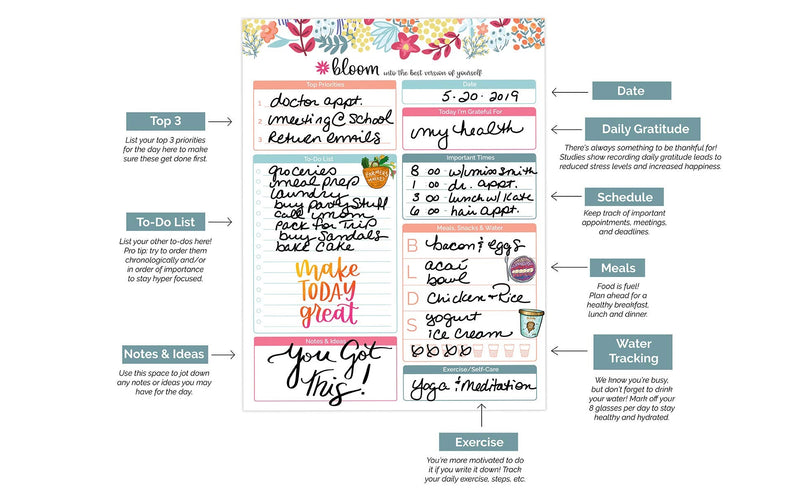 bloom into the best version of yourself
Top Priorities
1 doctor appt.
2 meeting @ School
3 Return emails
To-Do List
groceries
meal prep
laundry
buy party stuff
call mom
pack for Trip
buy Sandals
bake cake
FARMERS MARKET
make
TODAY
great
Notes & Ideas
You Got
This!
Date
5-20-2019
Today I'm Grateful For
my health
Important Times
8 00 w/miss smith
1 00 dr. appt.
3 00 lunch w/ Kate
6 00 hair appt.
Meals, Snacks & Water
B bacon & eggs
L acaí
bowl
D Chicken & Rice
S yogurt
ice cream
Exercise/Self-Care
Yoga & Meditation
Top 3
List your top 3 priorities
for the day here to make
sure these get done first.
To-Do List
List your other to-dos here!
Pro tip: try to order them
chronologically and/or
in order of importance
to stay hyper focused.
Notes & Ideas
Use this space to jot down
any notes or ideas you may
have for the day.
Date
Daily Gratitude
There's always something to be thankful for!
Studies show recording daily gratitude leads to
reduced stress levels and increased happiness.
Schedule
Keep track of important
appointments, meetings,
and deadlines.
Meals
Food is fuel!
Plan ahead for a
healthy breakfast,
lunch and dinner.
Water
Tracking
We know you're busy,
but don't forget to drink
your water! Mark off your
8 glasses per day to stay
healthy and hydrated.
Exercise
You're more motivated to do
it if you write it down! Track
your daily exercise, steps, etc.